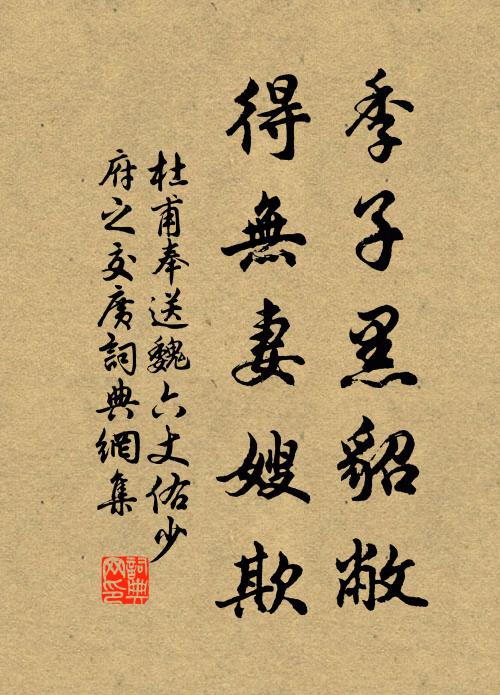 季子黑貂敝
得無妻嫂欺
杜甫奉送魏六丈佑少
府之交廣詞典網集
詞典
网印